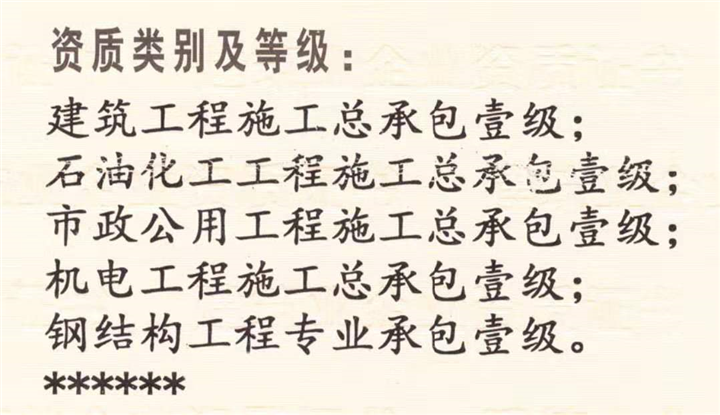 资质类别及等级：
建筑工程施工总承包壹级；
石油化工工程施工总承包壹级；
市政公用工程施工总承包壹级；
机电工程施工总承包壹级；
钢结构工程专业承包壹级。
******